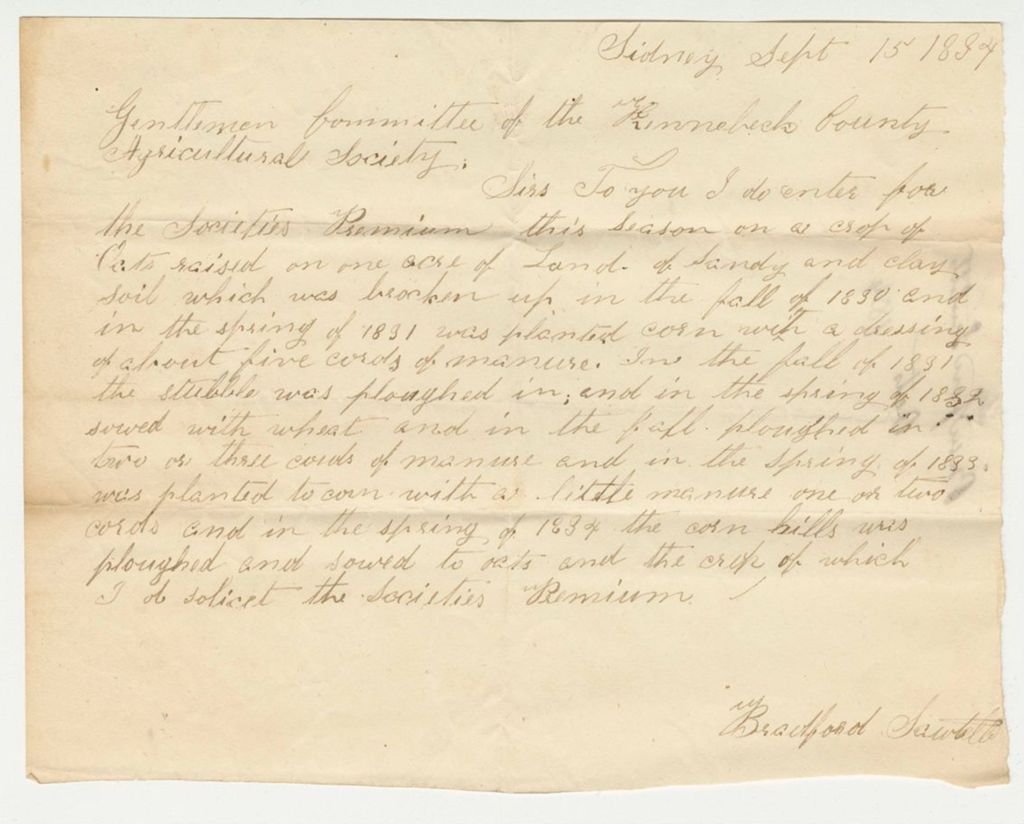 Sidney Sept 15 1834
Gentlemen Committee of the Kennebeck County
Agricultural Society.
Sirs To you I do enter for
the Societies Premium this season on a crop of
Oats raised on one acre of Land. of Sandy and clay
soil which was brocken up in the fall of 1830 and
in the spring of 1831 was planted corn with a dressing
of about five cords of manure. In the fall of 1831
the stubble was ploughed in; and in the spring of 1832
sowed with wheat and in the fall ploughed in
two or three cords of manure and in the spring of 1833.
was planted to corn with a little manure one or two
cords and in the spring of 1834 the corn hills was
ploughed and sowed to oats and the crop of which
I do solicet the Societies Premium
Bradford Sawtell